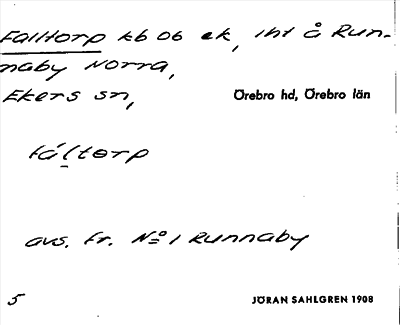 Falltorp kb 06 ek, int å Run-
naby Norra,
Ekers sn, Örebro hd, Örebro län
fáltɵrp
avs. fr. Nº 1 Runnaby
5 JÖRAN SAHLGREN 1908